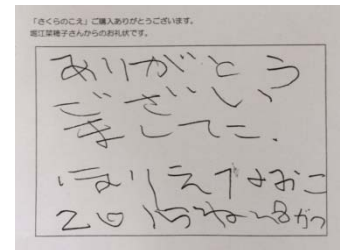 「さくらのこえ」ご購入ありがとうございます。
堀江菜穂子さんからのお礼状です。
ありがとう
ござい
ました.
ほりえなおこ
2015ねん8がつ